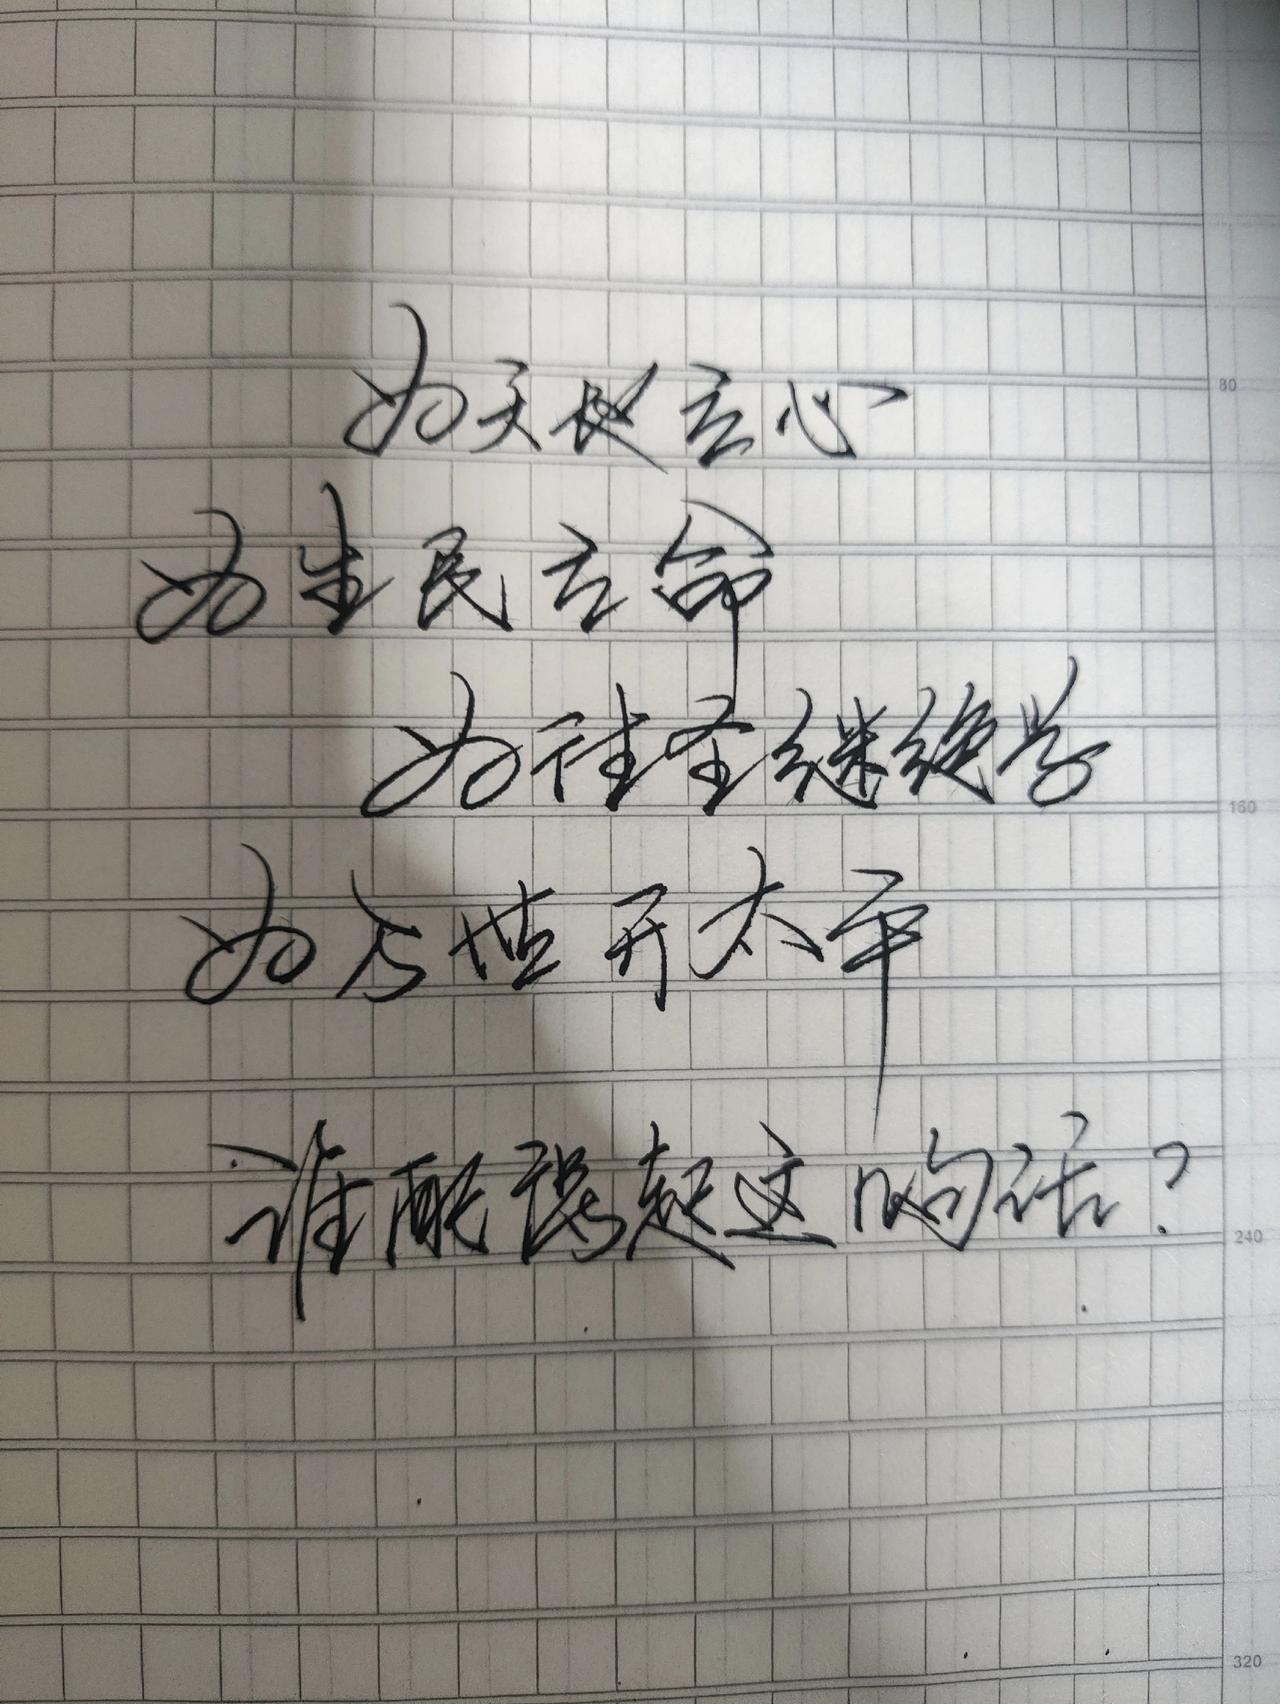 为天地立心
为生民立命
为往圣继绝学
为万世开太平
谁配说起这句话？
80
160
240
320